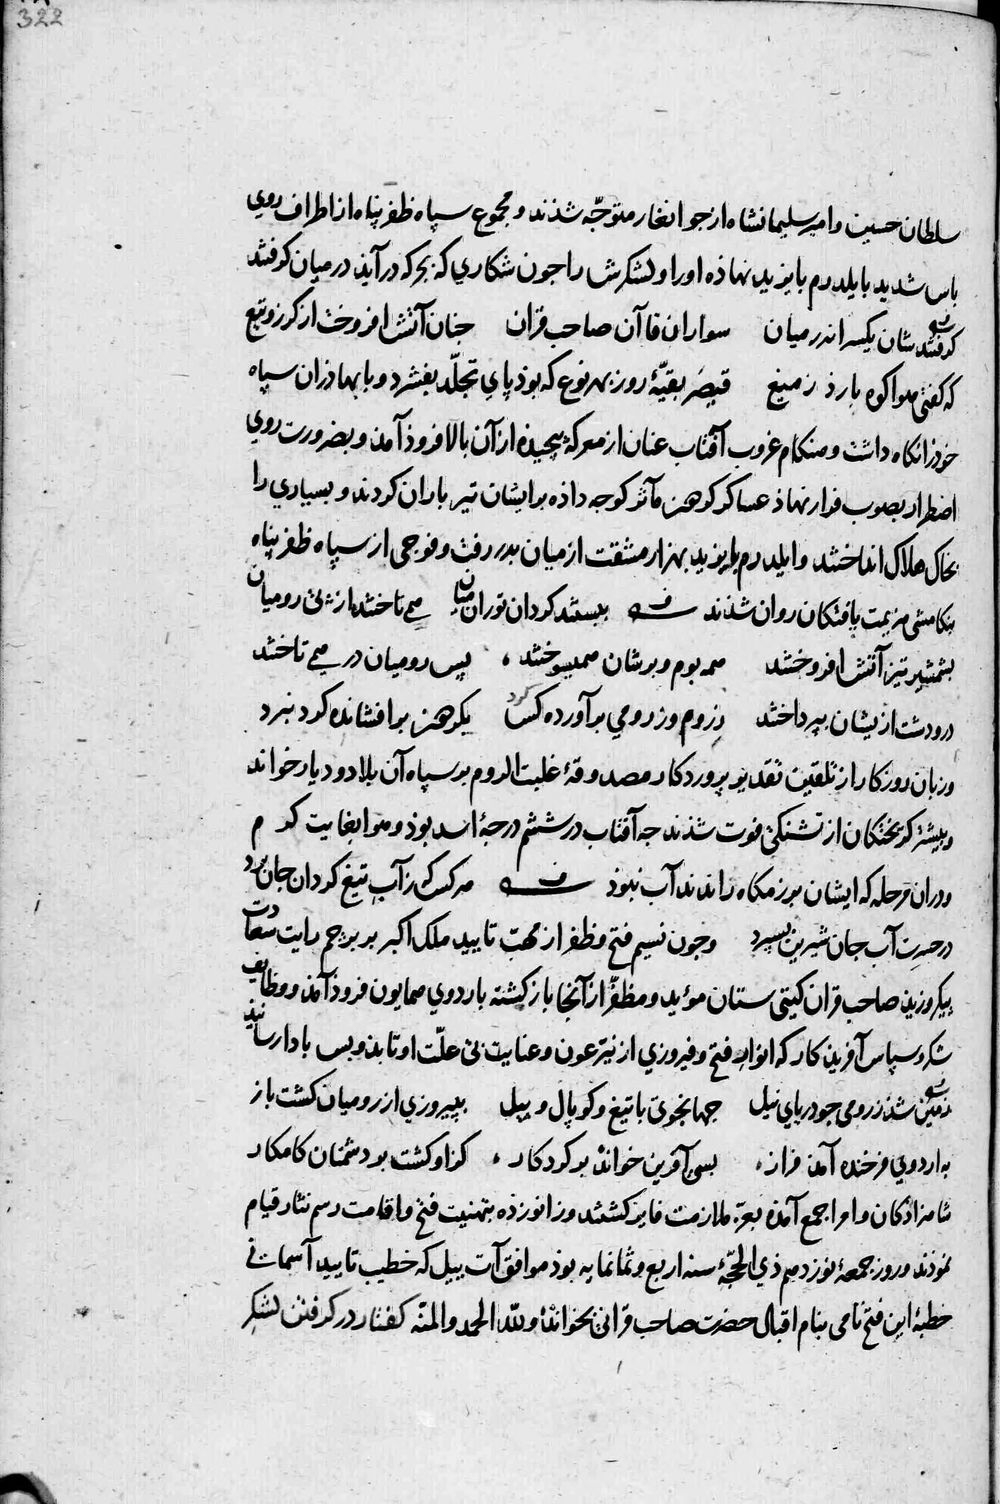 322
سلطان حسین و امیر سلیمانشاه از جوانغار متوجّه شذند و مجموع سپاه ظفر پناه از اطراف روی
باس شدید بایلدرم بایزید نهاذه او را و لشکرش را جون شکاری که بجرکه درآید در میان کرفتند
کرفتندشان یکسر اندر میان سواران قاآن صاحب قران جنان آتش افروخت از کرز و تیغ
که کفتی هوا کوه بارذ ز میغ قیصر بقیّهٔ روز بهر نوع که بوذ پای تجلّد بفشرد و با بهاذران سپاه
خوذ را نکاه داشت و هنکام غروب آفتاب عنان از معرکه پیجیذه از آن بالا فروذ آمذ و بضرورت روی
اضطرار بصوب فرار نهاذ عساکر کوهر مآثر کوجه داذه بر ایشان تیر باران کردند و بسیاری را
بخاک هلاک انداختند و ایلدرم بایزید بهزار مشقت از میان بدر رفت و فوجی از سپاه ظفر پناه
بتکامشی هزیمت یافتکان روان شذند ببستند کردان توران میان همی تاختند از پی رومیان
بشمشیر تیز آتش افروختند همه بوم و برشان همیسوختند پس رومیان در همی تاختند
در و دشت ازیشان بپرداختند ز روم و ز رومی برآورده کرد یکر هز بر افشانده کرد نبرد
و زبان روزکار از تلقین تقدیر پروردکار مصدوقهٔ غلبت الروم بر سپاه آن بلاد و دیار خواند
و بیشتر کریختکان از تشنکی فوت شذند جه آفتاب در ششم درجهٔ اسد بوذ و هوا بغایت کرم
و در آن مرحله که ایشان بر زمکاه راندند آب نبوذ هر کس که ز آب تیغ کردان جان برد
در حسرت آب جان شیرین بسپرد و جون نسیم فتح و ظفر از مهب تایید ملک اکبر بر پرجم رایت سعادت
پیکر وزید صاحب قران کیتی ستان مؤید و مظفّر از آنجا باز کشته باردوی همایون فروذ آمذ و وظایف
شکر و سپاس آفریدکار که انواع فتح و فیروزی از نیّر عون و عنایت بی علّت او تابذ و بس بادا رسانید
زمین شذ ز رومی جو دریای نیل جهانجوی با تیغ و کوپال و پیل بپیروزی از رومیان کشت باز
به اردوی فرخنده آمذ فراز بسی آفرین خواند بر کردکار کزو کشت بر دشمنان کامکار
شاهزاذکان و امرا جمع آمذه بعزّ ملازمت فایز کشتند و زانو زذه بتهنیت فتح و اقامت رسم نثار قیام
نموذند و روز جمعهٔ نوزدهم ذی الحجّهٔ سنه اربع و ثمانمایه بوذ موافق آت ییل که خطیب تایید آسمانی
خطبهٔ این فتح نامی بنام اقبال حضرت صاحب قرانی بخواند و للّه الحمد و المنّه کفتار در کرفتن لشکر